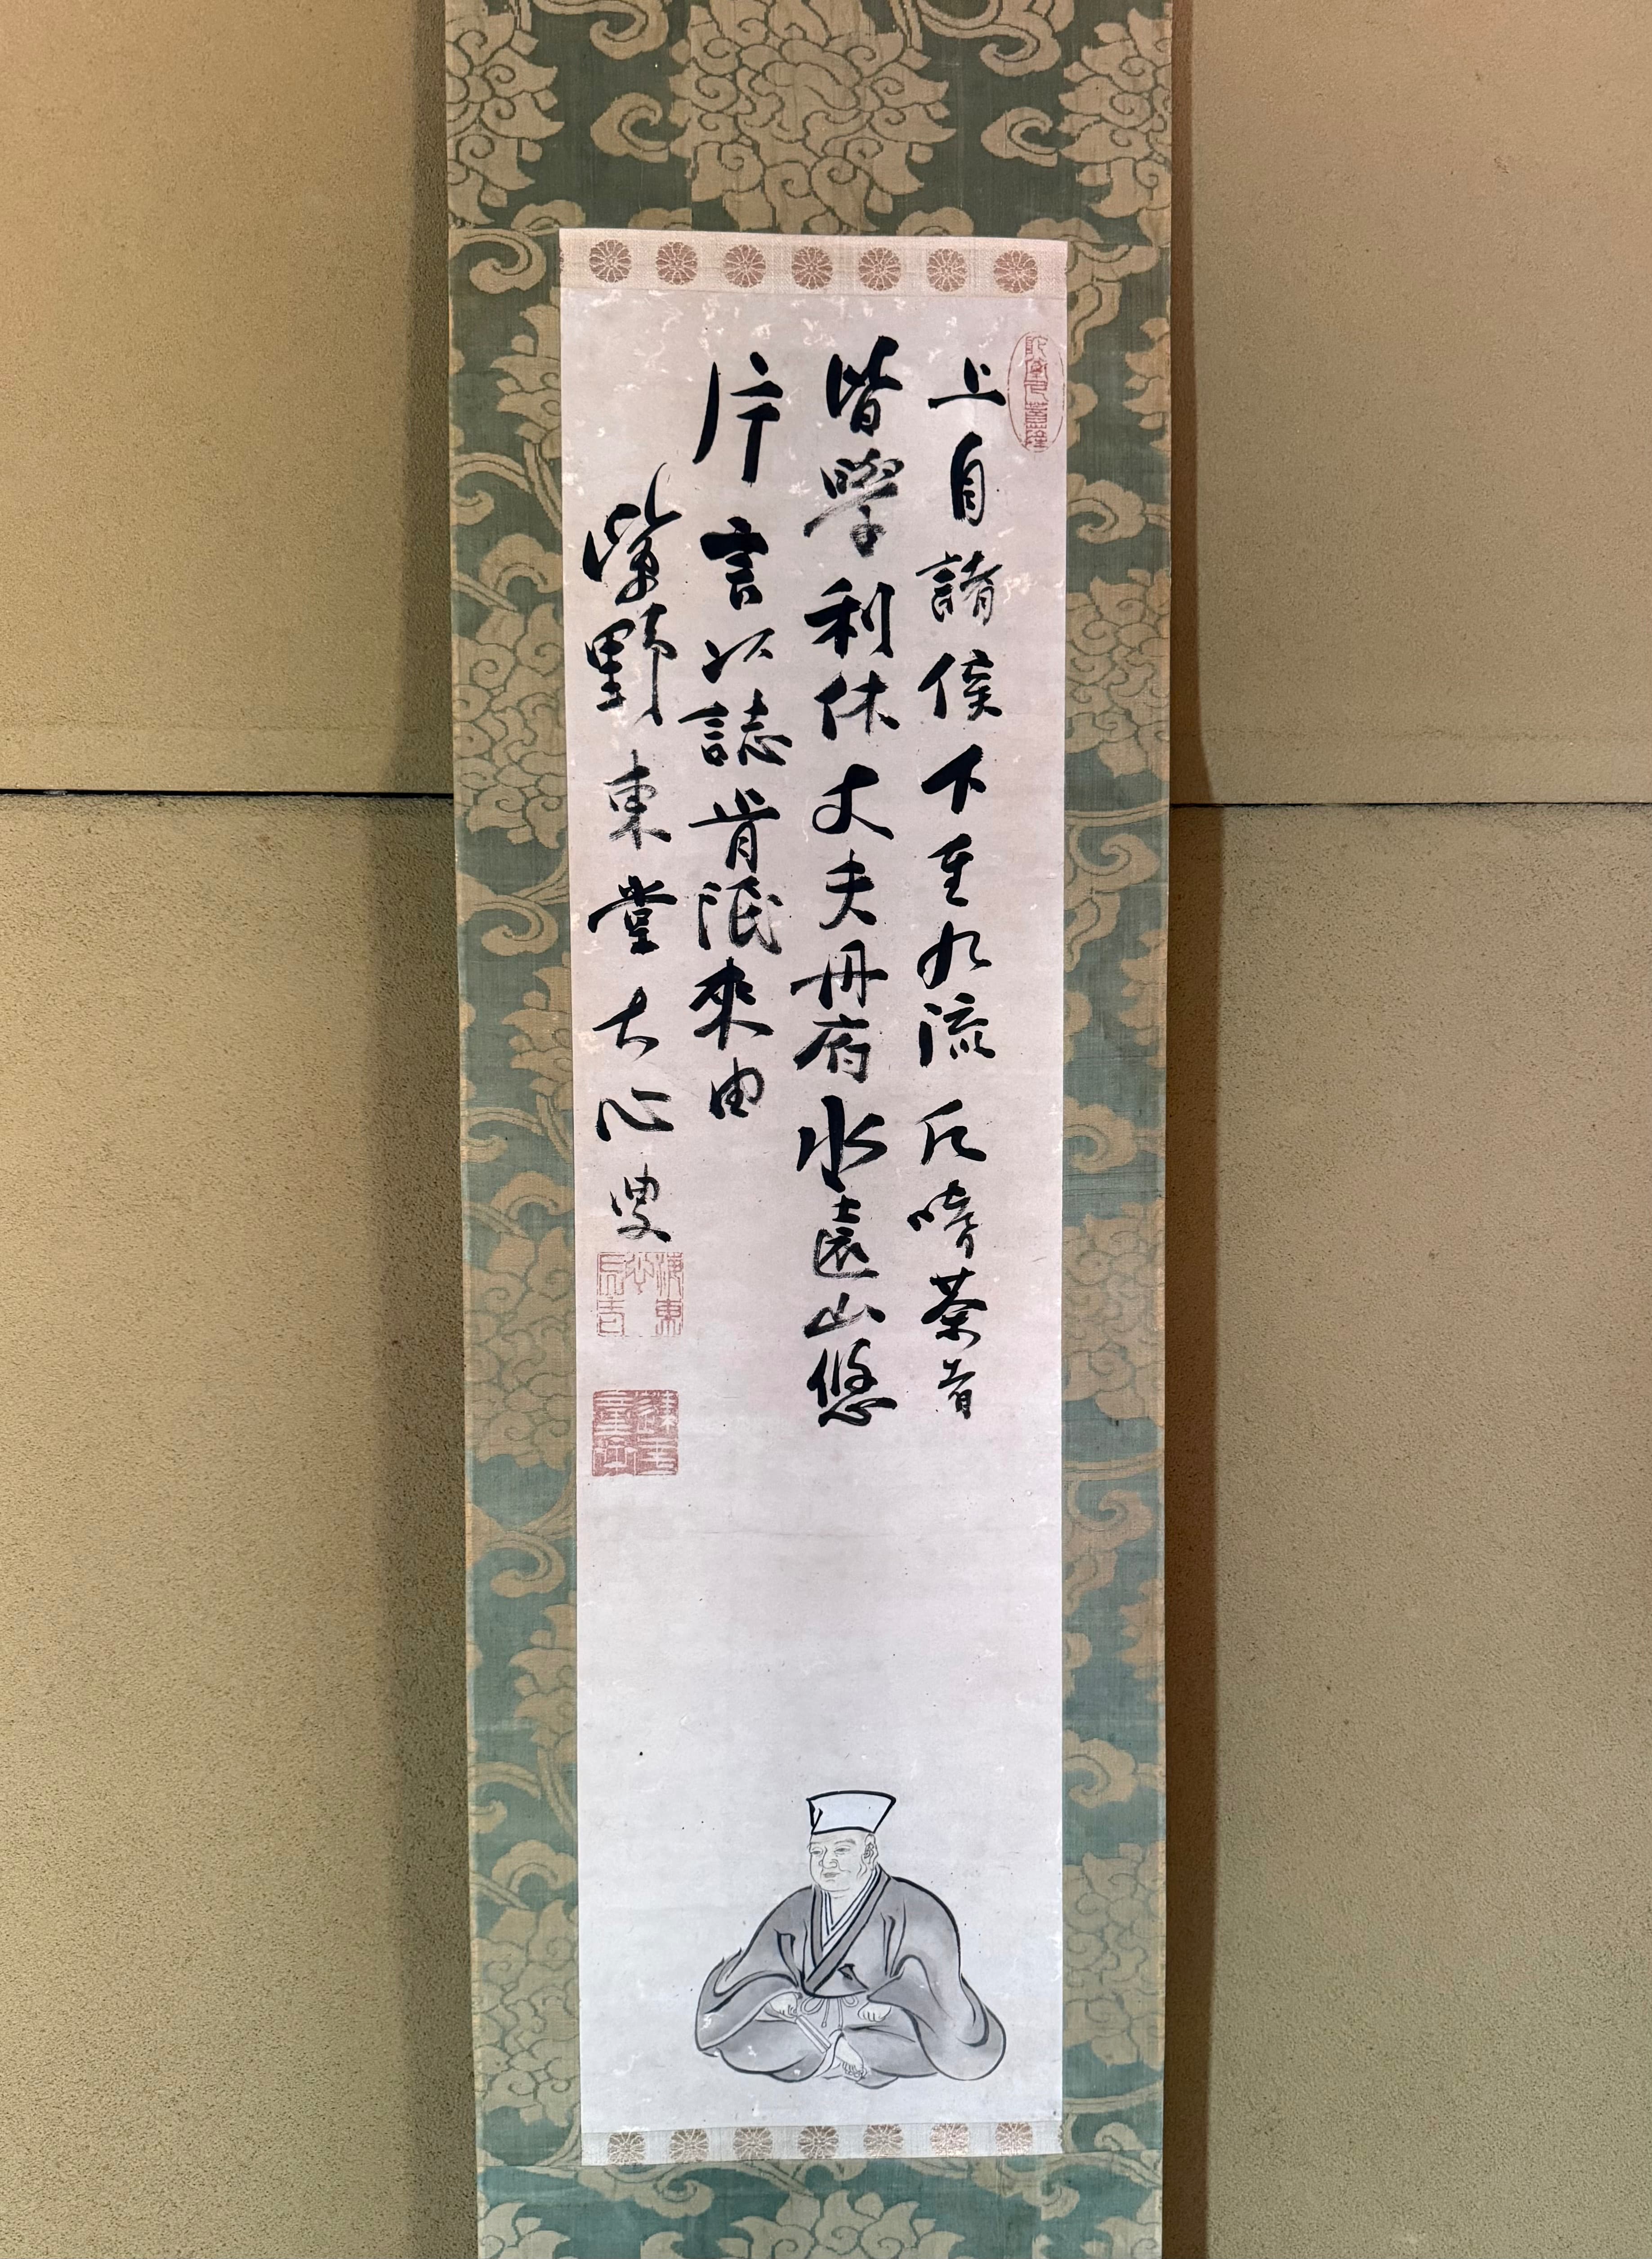 上自諸侯下至九流凡嗜茶者
皆學利休丈夫丹府水遠山悠
片言以誌肯泯來由
紫野東堂大心叟